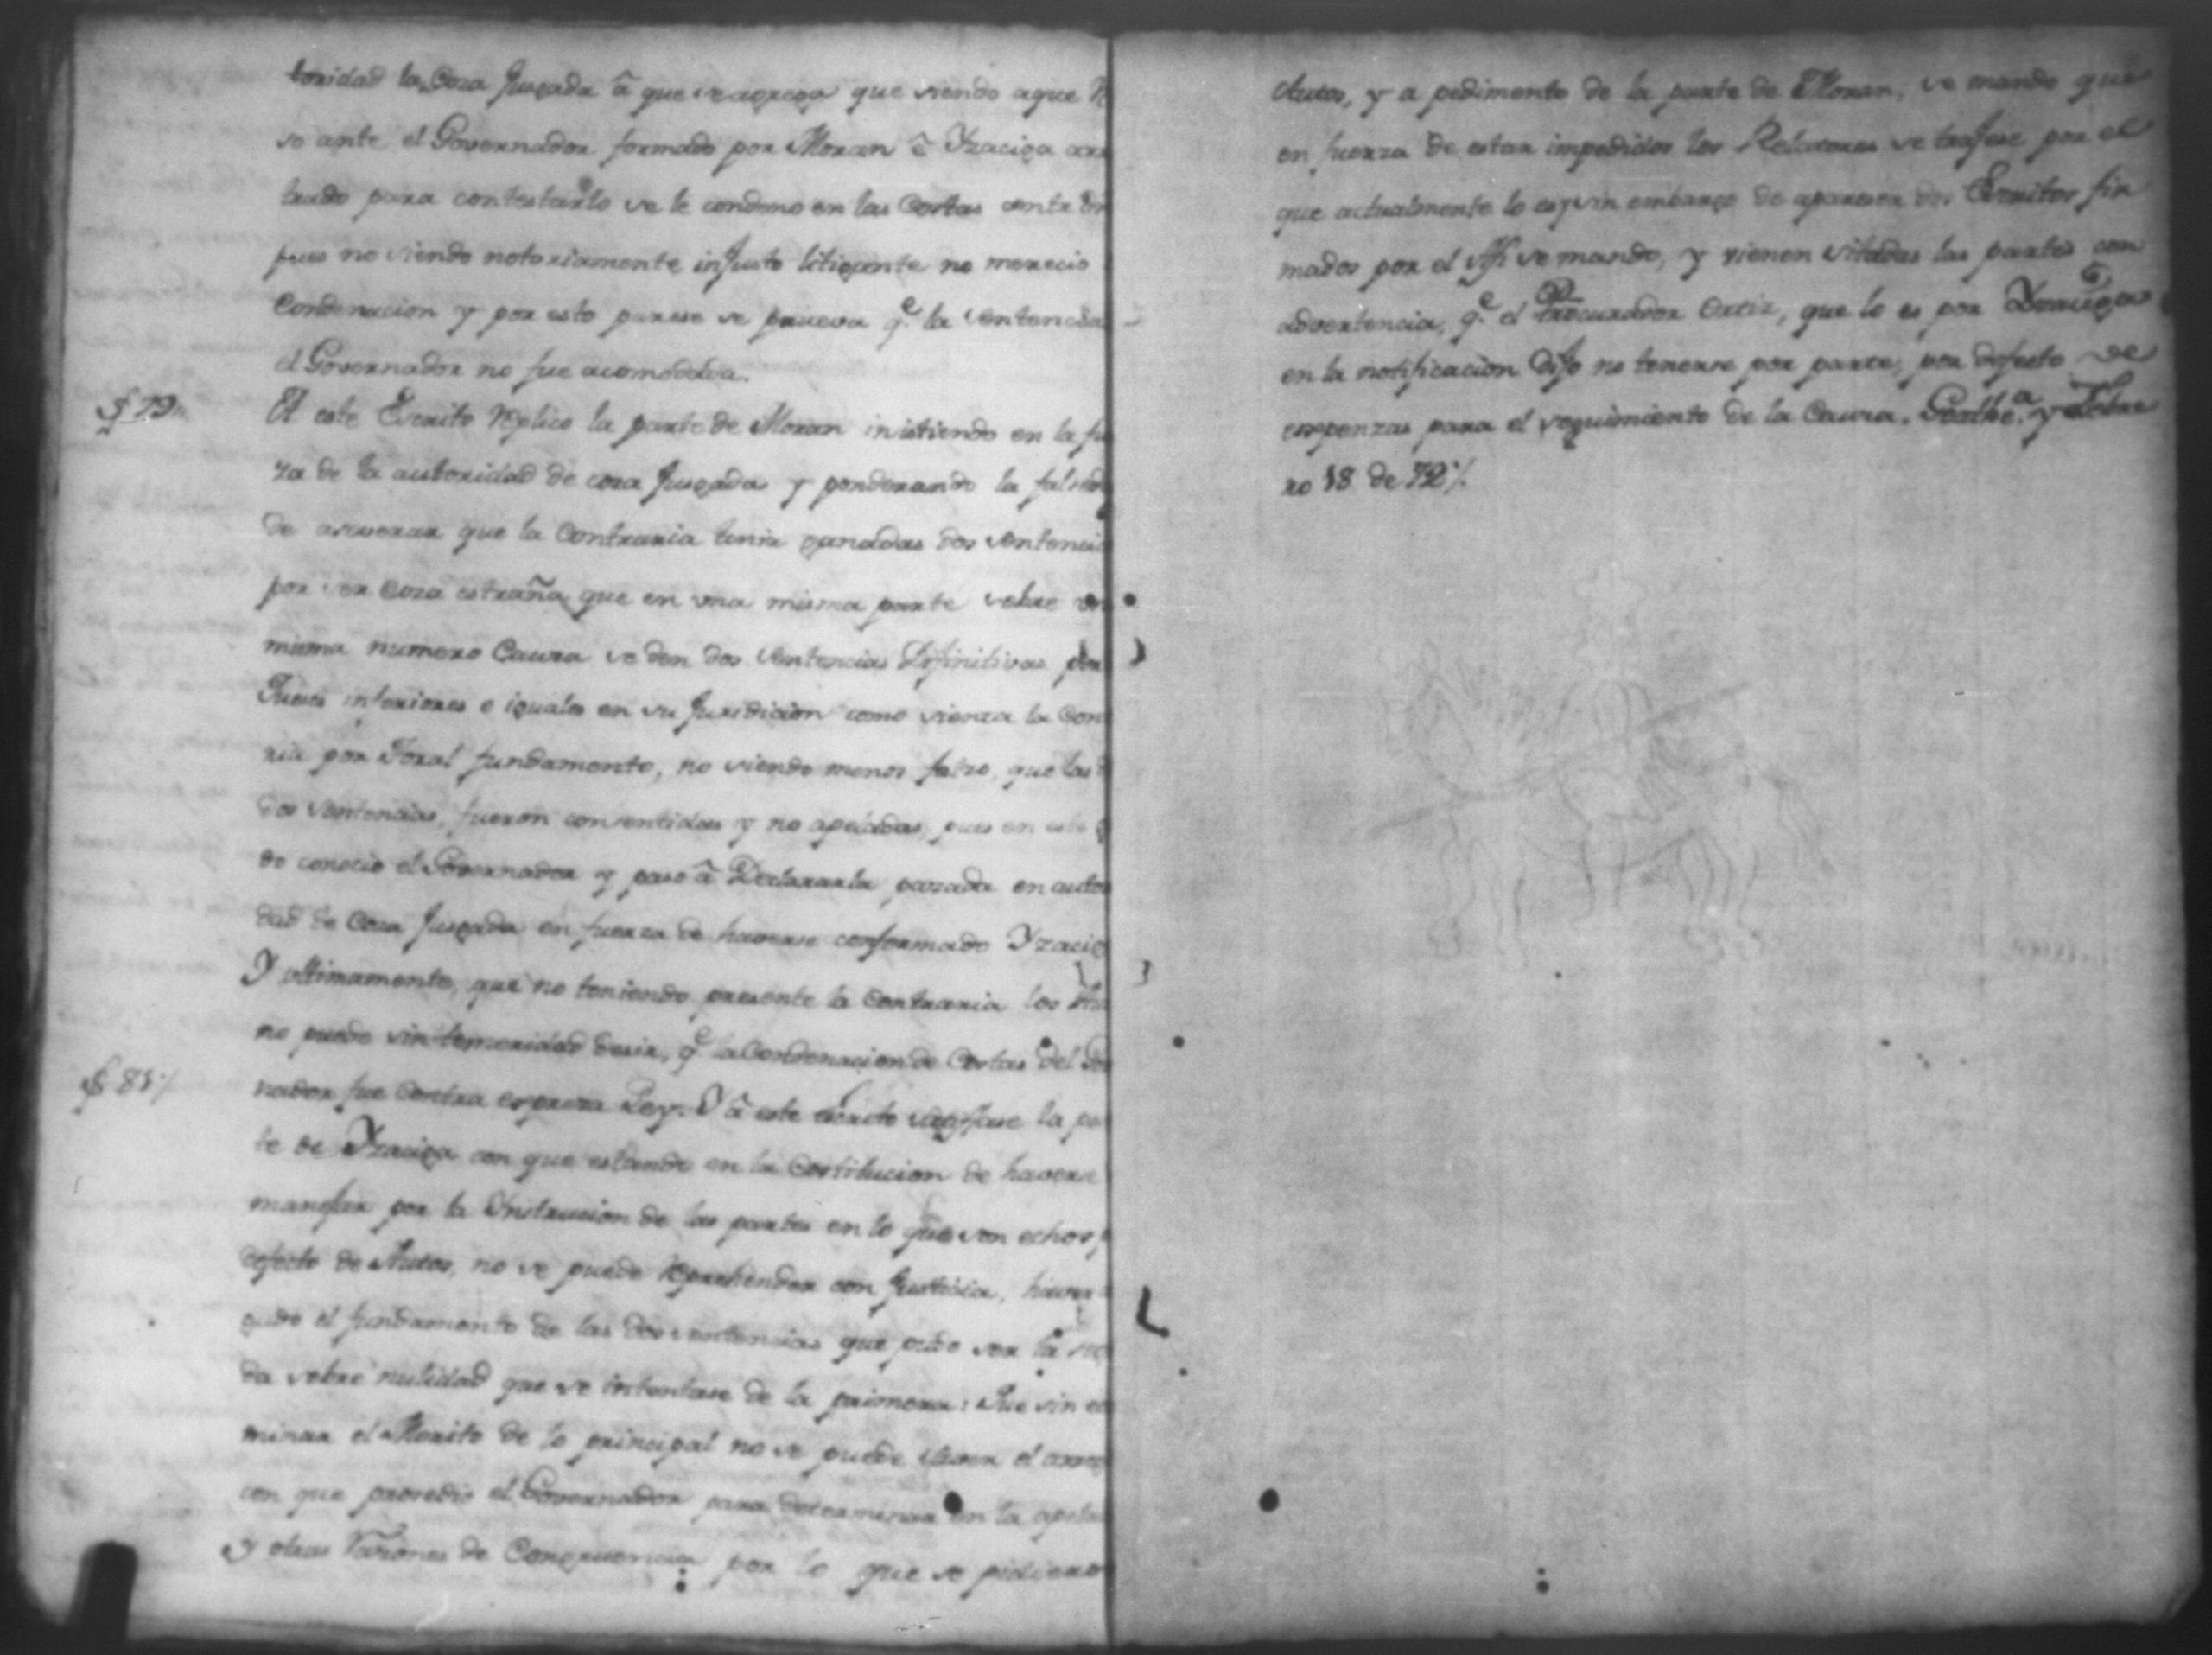 toridad la Coza Juzgada â que se agrega que siendo aque
so ante el Governador formado por Moran ê Yzaciga
trado para contestarlo se le condeno en las Costas
pues no siendo notoriamente injusto litigante no merecio
Condenacion y por esto parese se prueva q.e la Sentencia
el Governador no fue acomodada.
§ 79
A este Escrito replico la parte de Moran insistiendo en la fu
rza de la autoridad de coza Juzgada y ponderando la falsedad
de aseverar que la Contraria tenia ganadas dos Sentencia
por ser Coza estraña que en una misma parte sobre un
misma numero Cauza se den dos Sentencias Difinitivas por
Jueses inferiores e iguales en su Juridicion como sienta la Con
ria por Total fundamento, no siendo menos falso, que las
dos Sentencias, fueron consentidas y no apeladas, pues en este
do conocio el Governador y paso â Declararla pasada en auto
dad de Coza Juzgada en fuerza de haverse conformado Yzacig
Y ultimamente, que no teniendo presente la Contraria los Au
no puede sin temeridad desir, q.e la Condenacion de Costas del Go
§ 81
nador fue Contra expresa Ley. Y â este escrito satisfase la pa
te de Yzaciga con que estando en la Costitucion de haverse
manejar por la Ynstrucion de las partes en lo que son echos p
defecto de Autos, no se puede reprehender con Justisia, haver
gado el fundamento de las dos sentencias que pudo ser la seg
da sobre nulidad que se intentase de la primera: Que sin ex
minar el Merito de lo principal no se puede el
con que prosedio el Governador para determinar en la apela
y otras razones de Congruencia por lo que se pidieron
Autos, y a pedimento de la parte de Moran, se mando que
en fuerza de estar impedidos los Relatores se trajese por el
que actualmente lo es, y sin embargo de apareser dos Escritos fir
mados por el se mando, y vienen sitadas las partes con
advertencia, q.e el Procurador Ortiz, que lo es por Yzaciga
en la notificacion dijo no tenerse por parte, por defecto de
expenzas para el seguimiento de la Cauza. y Febre
ro 18 de